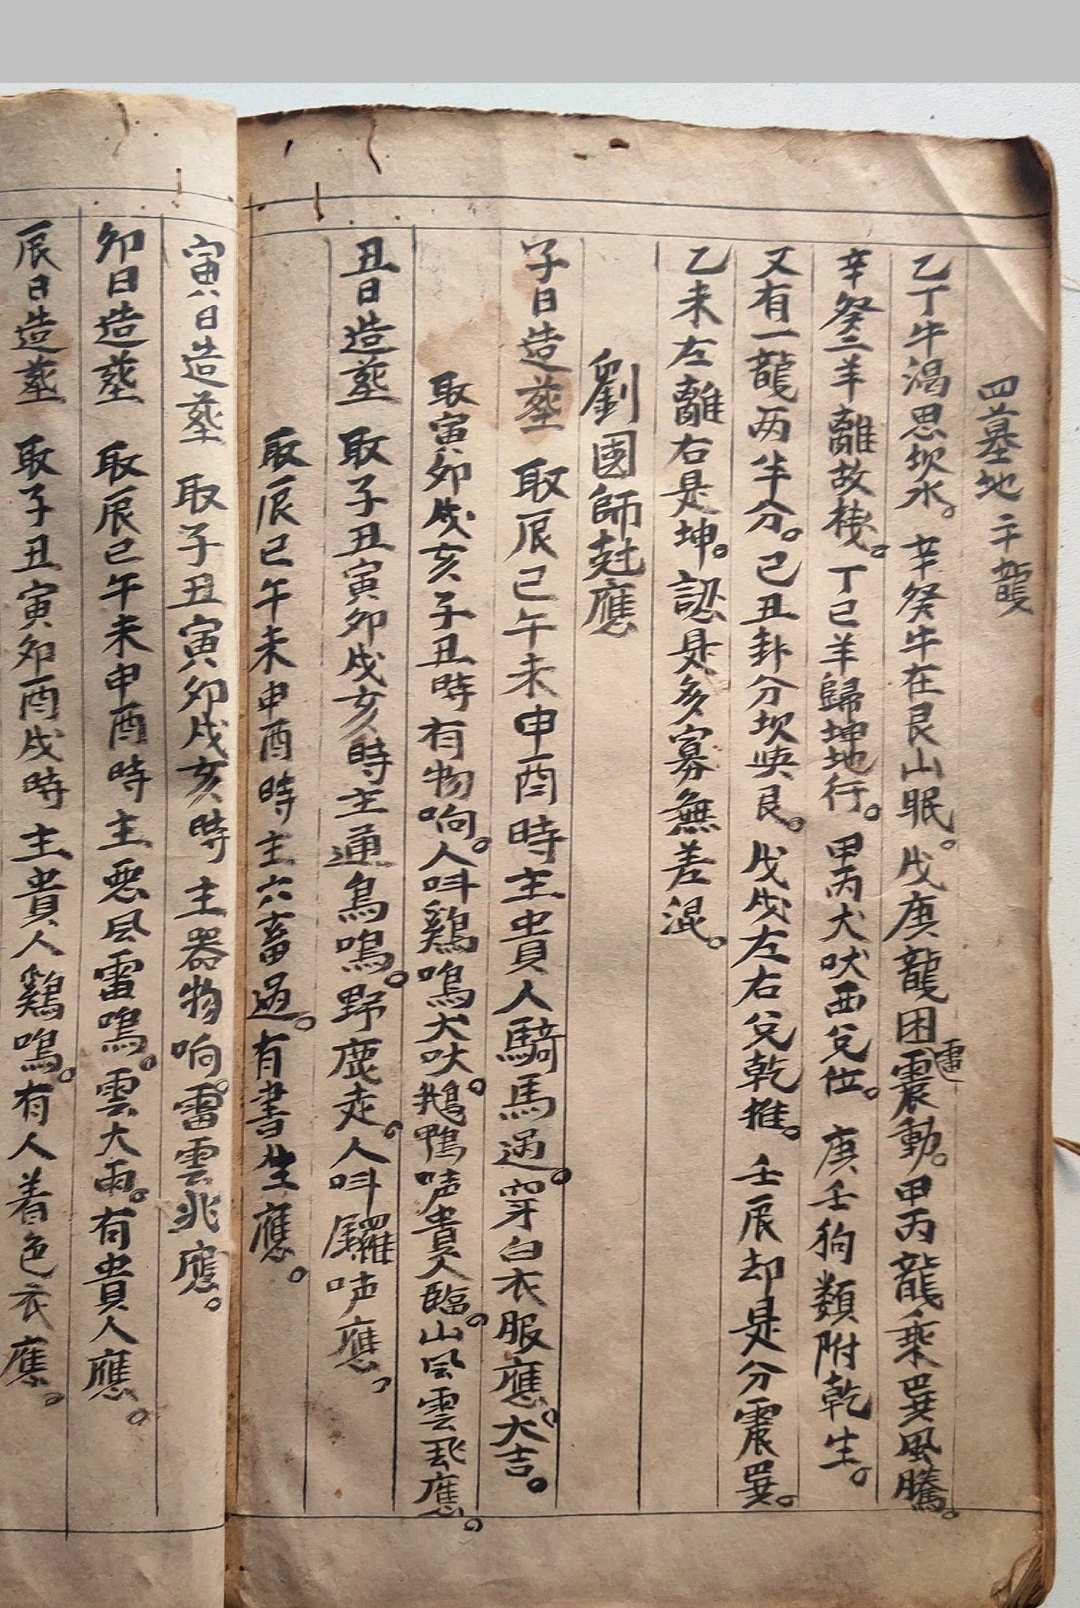 四墓地干龍
乙丁牛渴思坎水。辛癸牛在艮山眠。戊庚龍困震動。甲丙龍乘巽風騰。
雷
辛癸二羊離故栈。丁己羊歸坤地行。甲丙犬吠西兌位。庚壬狗類附乾生。
又有一龍两半分。己丑卦分坎與艮。戊戌左右兌乾推。壬辰却是分震巽。
乙未左離右是坤。認是多寡無差混。
劉國師尅應
子日造塟 取辰巳午未申酉時主貴人騎馬過。穿白衣服應。大吉。
取寅卯戌亥子丑時有物响。人呌鷄鳴犬吠。鵝鴨唔貴人臨。山風雲飛應。
丑日造塟 取子丑寅卯戌亥時主通鳥鳴。野鹿走。人呌鑼声應。
取辰巳午未申酉時主六畜過。有書生應。
寅日造塟 取子丑寅卯戌亥時主器物响。雷雲兆應。
卯日造塟 取辰巳午未申酉時主惡風雷鳴。雲大雨。有貴人應。
辰日造塟 取子丑寅卯酉戌時主貴人鷄鳴。有人着色衣應。